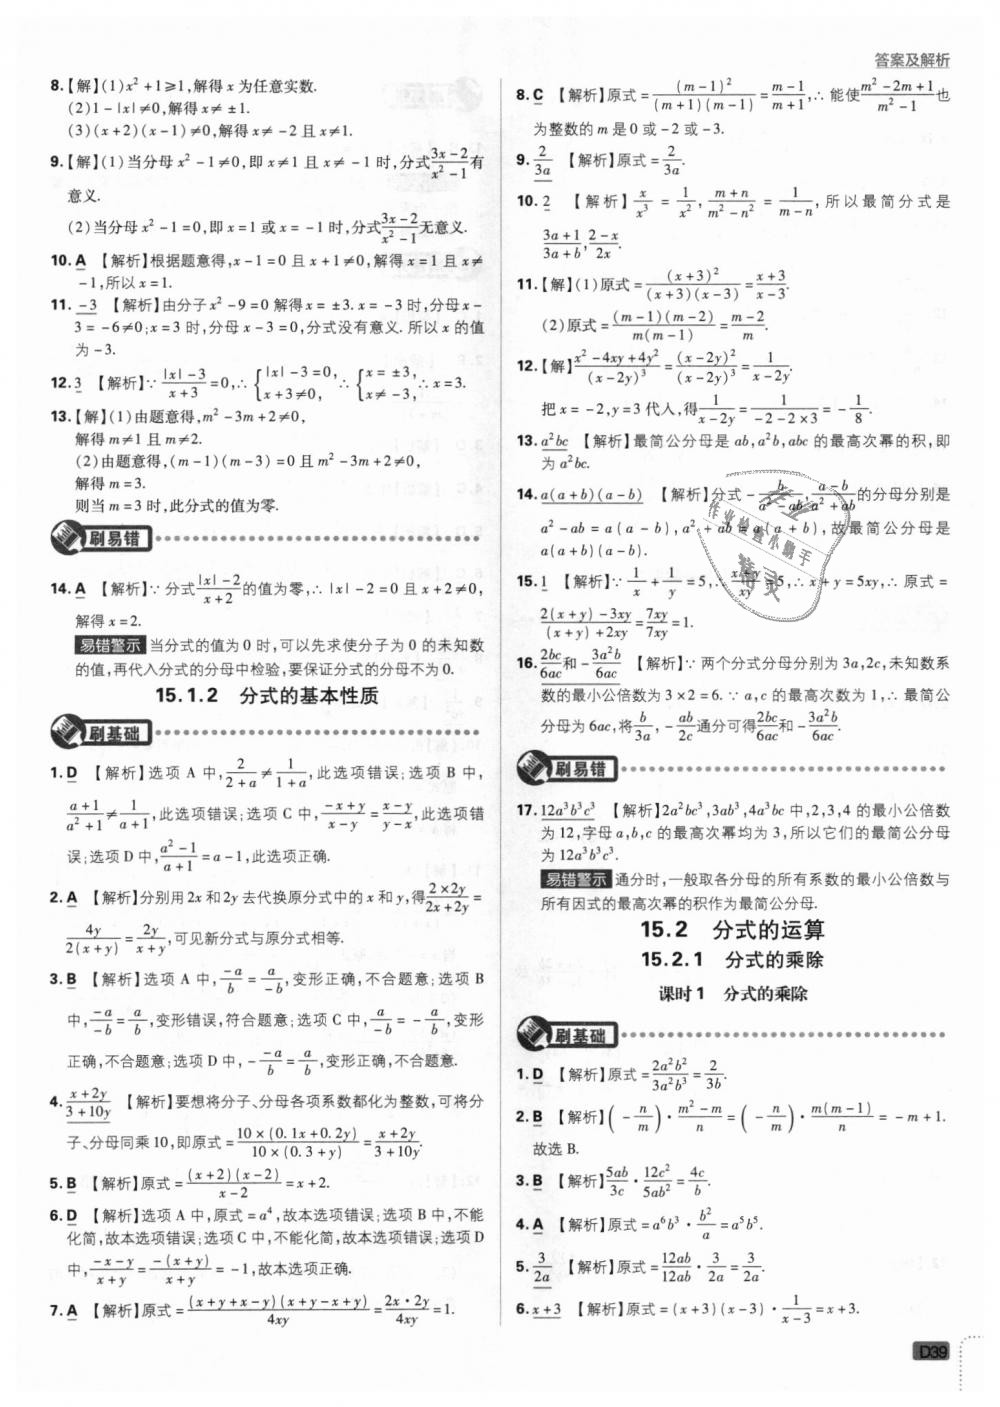 答案及解析
8.【解】(1)x²+1≥1,解得 x 为任意实数.
(2)1-|x|≠0,解得 x≠±1.
(3)(x+2)(x-1)≠0,解得 x≠-2 且 x≠1.
9.【解】(1)当分母 x²-1≠0,即 x≠1 且 x≠-1 时,分式(3x-2)/(x²-1)有
意义.
(2)当分母 x²-1=0,即 x=1 或 x=-1 时,分式(3x-2)/(x²-1)无意义.
10. A 【解析】根据题意得,x-1=0 且 x+1≠0,解得 x=1 且 x≠
-1,所以 x=1.
11. -3 【解析】由分子 x²-9=0 解得 x=±3. x=-3 时,分母 x-
3=-6≠0;x=3 时,分母 x-3=0,分式没有意义. 所以 x 的值
为-3.
12. 3 【解析】∵ (|x|-3)/(x+3)=0,∴ {|x|-3=0, x+3≠0, ∴ {x=±3, x≠-3, ∴ x=3.
13.【解】(1)由题意得,m²-3m+2≠0,
解得 m≠1 且 m≠2.
(2)由题意得,(m-1)(m-3)=0 且 m²-3m+2≠0,
解得 m=3.
则当 m=3 时,此分式的值为零.
刷易错
14. A 【解析】∵ 分式(|x|-2)/(x+2)的值为零,∴ |x|-2=0 且 x+2≠0,
解得 x=2.
易错警示 当分式的值为 0 时,可以先求使分子为 0 的未知数
的值,再代入分式的分母中检验,要保证分式的分母不为 0.
15.1.2 分式的基本性质
刷基础
1. D 【解析】选项 A 中,2/(2+a)≠1/(1+a),此选项错误;选项 B 中,
(a+1)/(a²+1)≠1/(a+1),此选项错误;选项 C 中,(-x+y)/(x-y)=(x-y)/(y-x),此选项错
误;选项 D 中,(a²-1)/(a+1)=a-1,此选项正确.
2. A 【解析】分别用 2x 和 2y 去代换原分式中的 x 和 y,得(2×2y)/(2x+2y)=
4y/(2(x+y))=2y/(x+y),可见新分式与原分式相等.
3. B 【解析】选项 A 中,(-a)/b=a/(-b),变形正确,不合题意;选项 B
中,(-a)/(-b)=a/b,变形错误,符合题意;选项 C 中,a/(-b)=-a/b,变形
正确,不合题意;选项 D 中,-(-a)/b=a/b,变形正确,不合题意.
4. (x+2y)/(3+10y) 【解析】要想将分子、分母各项系数都化为整数,可将分
子、分母同乘 10,即原式=(10×(0.1x+0.2y))/(10×(0.3+y))=(x+2y)/(3+10y).
5. B 【解析】原式=((x+2)(x-2))/(x-2)=x+2.
6. D 【解析】选项 A 中,原式=a⁴,故本选项错误;选项 B 中,不能
化简,故本选项错误;选项 C 中,不能化简,故本选项错误;选项 D
中,(-x-y)/(x+y)=(-(x+y))/(x+y)=-1,故本选项正确.
7. A 【解析】原式=((x+y+x-y)(x+y-x+y))/(4xy)=(2x·2y)/(4xy)=1.
8. C 【解析】原式=((m-1)²)/((m+1)(m-1))=(m-1)/(m+1),∴ 能使(m²-2m+1)/(m²-1)也
为整数的 m 是 0 或-2 或-3.
9. 2/(3a) 【解析】原式=2/(3a).
10. 2 【解析】x/x³=1/x²,(m+n)/(m²-n²)=1/(m-n),所以最简分式是
(3a+1)/(3a+b),(2-x)/(2x).
11.【解】(1)原式=((x+3)²)/((x+3)(x-3))=(x+3)/(x-3).
(2)原式=((m-1)(m-2))/(m(m-1))=(m-2)/m.
12.【解】(x²-4xy+4y²)/((x-2y)³)=((x-2y)²)/((x-2y)³)=1/(x-2y).
把 x=-2,y=3 代入,得1/(x-2y)=1/(-2-2×3)=-1/8.
13. a²bc 【解析】最简公分母是 ab,a²b,abc 的最高次幂的积,即
为 a²bc.
14. a(a+b)(a-b) 【解析】分式-b/(a²-ab),(a-b)/(a²+ab)的分母分别是
a²-ab=a(a-b),a²+ab=a(a+b),故最简公分母是
a(a+b)(a-b).
15. 1 【解析】∵ 1/x+1/y=5,∴ (x+y)/(xy)=5,∴ x+y=5xy,∴ 原式=
(2(x+y)-3xy)/((x+y)+2xy)=7xy/7xy=1.
16. 2bc/6ac和-3a²b/6ac 【解析】∵ 两个分式分母分别为 3a,2c,未知数系
数的最小公倍数为 3×2=6. ∵ a,c 的最高次数为 1,∴ 最简公
分母为 6ac,将b/3a,-ab/2c通分可得2bc/6ac和-3a²b/6ac.
刷易错
17. 12a³b³c³ 【解析】2a²bc³,3ab³,4a³bc 中,2,3,4 的最小公倍数
为 12,字母 a,b,c 的最高次幂均为 3,所以它们的最简公分母
为 12a³b³c³.
易错警示 通分时,一般取各分母的所有系数的最小公倍数与
所有因式的最高次幂的积作为最简公分母.
15.2 分式的运算
15.2.1 分式的乘除
课时1 分式的乘除
刷基础
1. D 【解析】原式=2a²b²/3a²b³=2/3b.
2. B 【解析】(-n/m)·(m²-m)/n=(-n/m)·(m(m-1))/n=-m+1.
故选 B.
3. B 【解析】5ab/3c·12c²/5ab²=4c/b.
4. A 【解析】原式=a⁶b³·b²/a=a⁵b⁵.
5. 3/2a 【解析】原式=12ab/12ab·3/2a=3/2a.
6. x+3 【解析】原式=(x+3)(x-3)·1/(x-3)=x+3.
作业检查小助手
精灵
D39